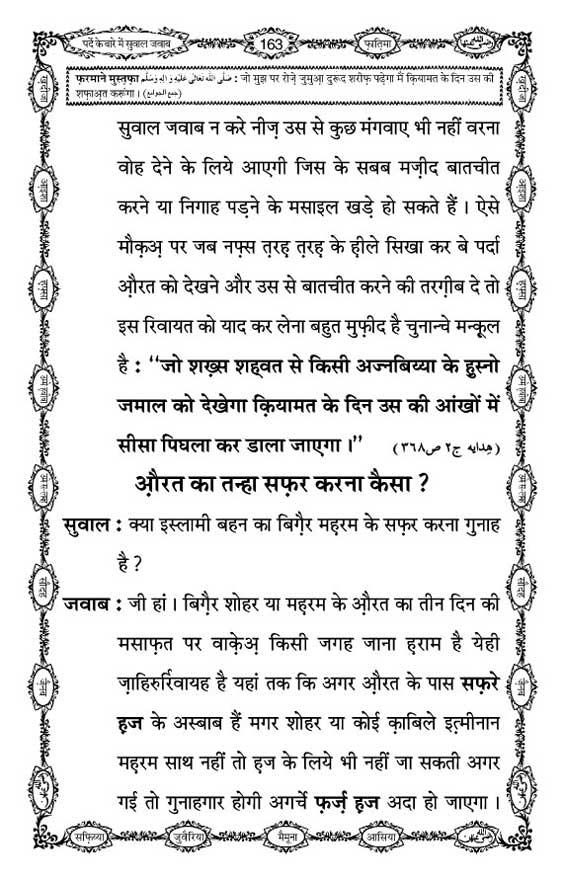 पर्दे के बारे में सुवाल जवाब
163
फ़ातिमा
फ़रमाने मुस्त़फ़ा صَلَّى اللهُ تَعَالٰى عَلَيْهِ وَاٰلِهٖ وَسَلَّم : जो मुझ पर रोज़े जुमुआ़ दुरूद शरीफ़ पढ़ेगा मैं क़ियामत के दिन उस की
शफ़ाअ़त करूंगा । (جمع الجوامع)
सुवाल जवाब न करे नीज़ उस से कुछ मंगवाए भी नहीं वरना
वोह देने के लिये आएगी जिस के सबब मज़ीद बातचीत
करने या निगाह पड़ने के मसाइल खड़े हो सकते हैं । ऐसे
मौक़अ़ पर जब नफ़्स त़रह़ त़रह़ के ह़ीले सिखा कर बे पर्दा
औ़रत को देखने और उस से बातचीत करने की तरग़ीब दे तो
इस रिवायत को याद कर लेना बहुत मुफ़ीद है चुनान्चे मन्क़ूल
है : “जो शख़्स शह्वत से किसी अज्नबिय्या के ह़ुस्नो
जमाल को देखेगा क़ियामत के दिन उस की आंखों में
सीसा पिघला कर डाला जाएगा ।” (هدايه ج٢ ص٣٦٨)
औ़रत का तन्हा सफ़र करना कैसा ?
सुवाल : क्या इस्लामी बहन का बिग़ैर मह़रम के सफ़र करना गुनाह
है ?
जवाब : जी हां । बिग़ैर शोहर या मह़रम के औ़रत का तीन दिन की
मसाफ़त पर वाक़ेअ़ किसी जगह जाना ह़राम है येही
ज़ाहिरुर्रिवायह है यहां तक कि अगर औ़रत के पास सफ़रे
ह़ज के अस्बाब हैं मगर शोहर या कोई क़ाबिले इत़्मीनान
मह़रम साथ नहीं तो ह़ज के लिये भी नहीं जा सकती अगर
गई तो गुनाहगार होगी अगर्चे फ़र्ज़ ह़ज अदा हो जाएगा ।
सफ़िय्या
जुवैरिया
मैमूना
आसिया